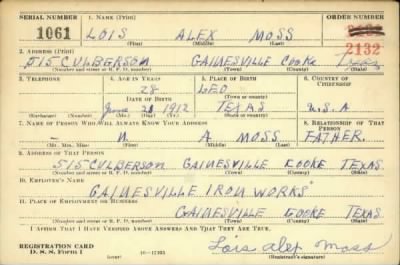 SERIAL NUMBER 1. NAME (Print) ORDER NUMBER
1061 LOIS ALEX MOSS
(First) (Middle) (Last) 2132
2. ADDRESS (Print)
515 CULBERSON GAINESVILLE COOKE TEXAS
(Number and street or R. F. D. number) (Town) (County) (State)
3. TELEPHONE 4. AGE IN YEARS 5. PLACE OF BIRTH 6. COUNTRY OF CITIZENSHIP
28 LEO
DATE OF BIRTH (Town or county)
June 28 1912 TEXAS U.S.A
(Exchange) (Number) (Mo.) (Day) (Yr.) (State or country)
7. NAME OF PERSON WHO WILL ALWAYS KNOW YOUR ADDRESS 8. RELATIONSHIP OF THAT PERSON
A MOSS FATHER
(Mr., Mrs., Miss) (First) (Middle) (Last)
9. ADDRESS OF THAT PERSON
515 CULBERSON GAINESVILLE COOKE TEXAS
(Number and street or R. F. D. number) (Town) (County) (State)
10. EMPLOYER'S NAME
GAINESVILLE IRON WORKS
11. PLACE OF EMPLOYMENT OR BUSINESS
GAINESVILLE COOKE TEXAS
(Number and street or R. F. D. number) (Town) (County) (State)
I AFFIRM THAT I HAVE VERIFIED ABOVE ANSWERS AND THAT THEY ARE TRUE.
REGISTRATION CARD Lois Alex Moss
D. S. S. Form 1 (over) (Registrant's signature)